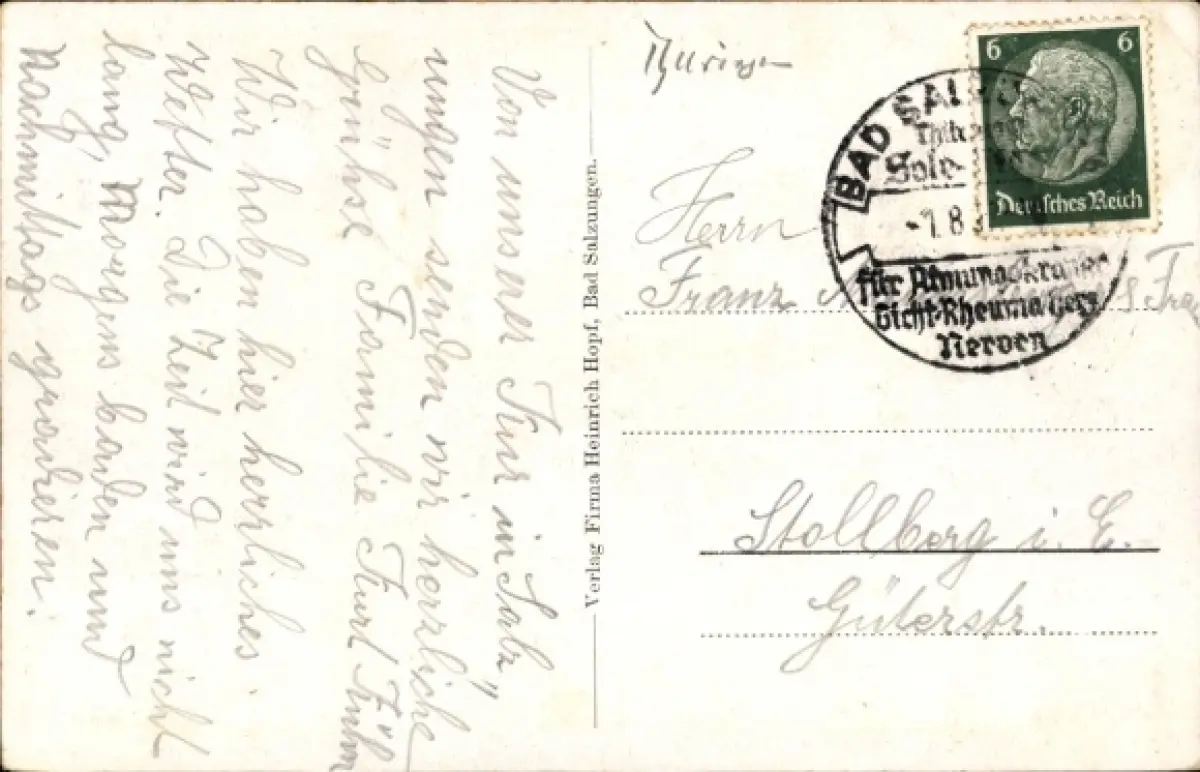 Von unserer Kur in Salz"
ungen senden wir herzliche
Grühse Familie Kurt Kühn
Wir haben hier herrliches
Wetter. Die Zeit wird uns nicht
lang, Morgens baden und
Nachmittags gradieren.
Verlag Firma Heinrich Hopf, Bad Salzungen.
Thüringen
6 6
Deutsches Reich
BAD SALZ
Sole-
-1.8
für Atmungskranke
Gicht-Rheuma Herz
Nerven
Herrn
Franz
Stollberg i. E.
Güterstr.